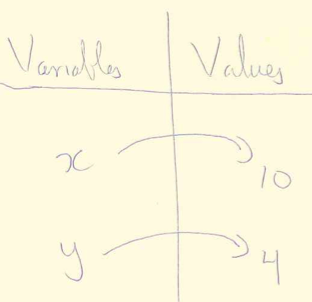 Variables Values
x 10
y 4